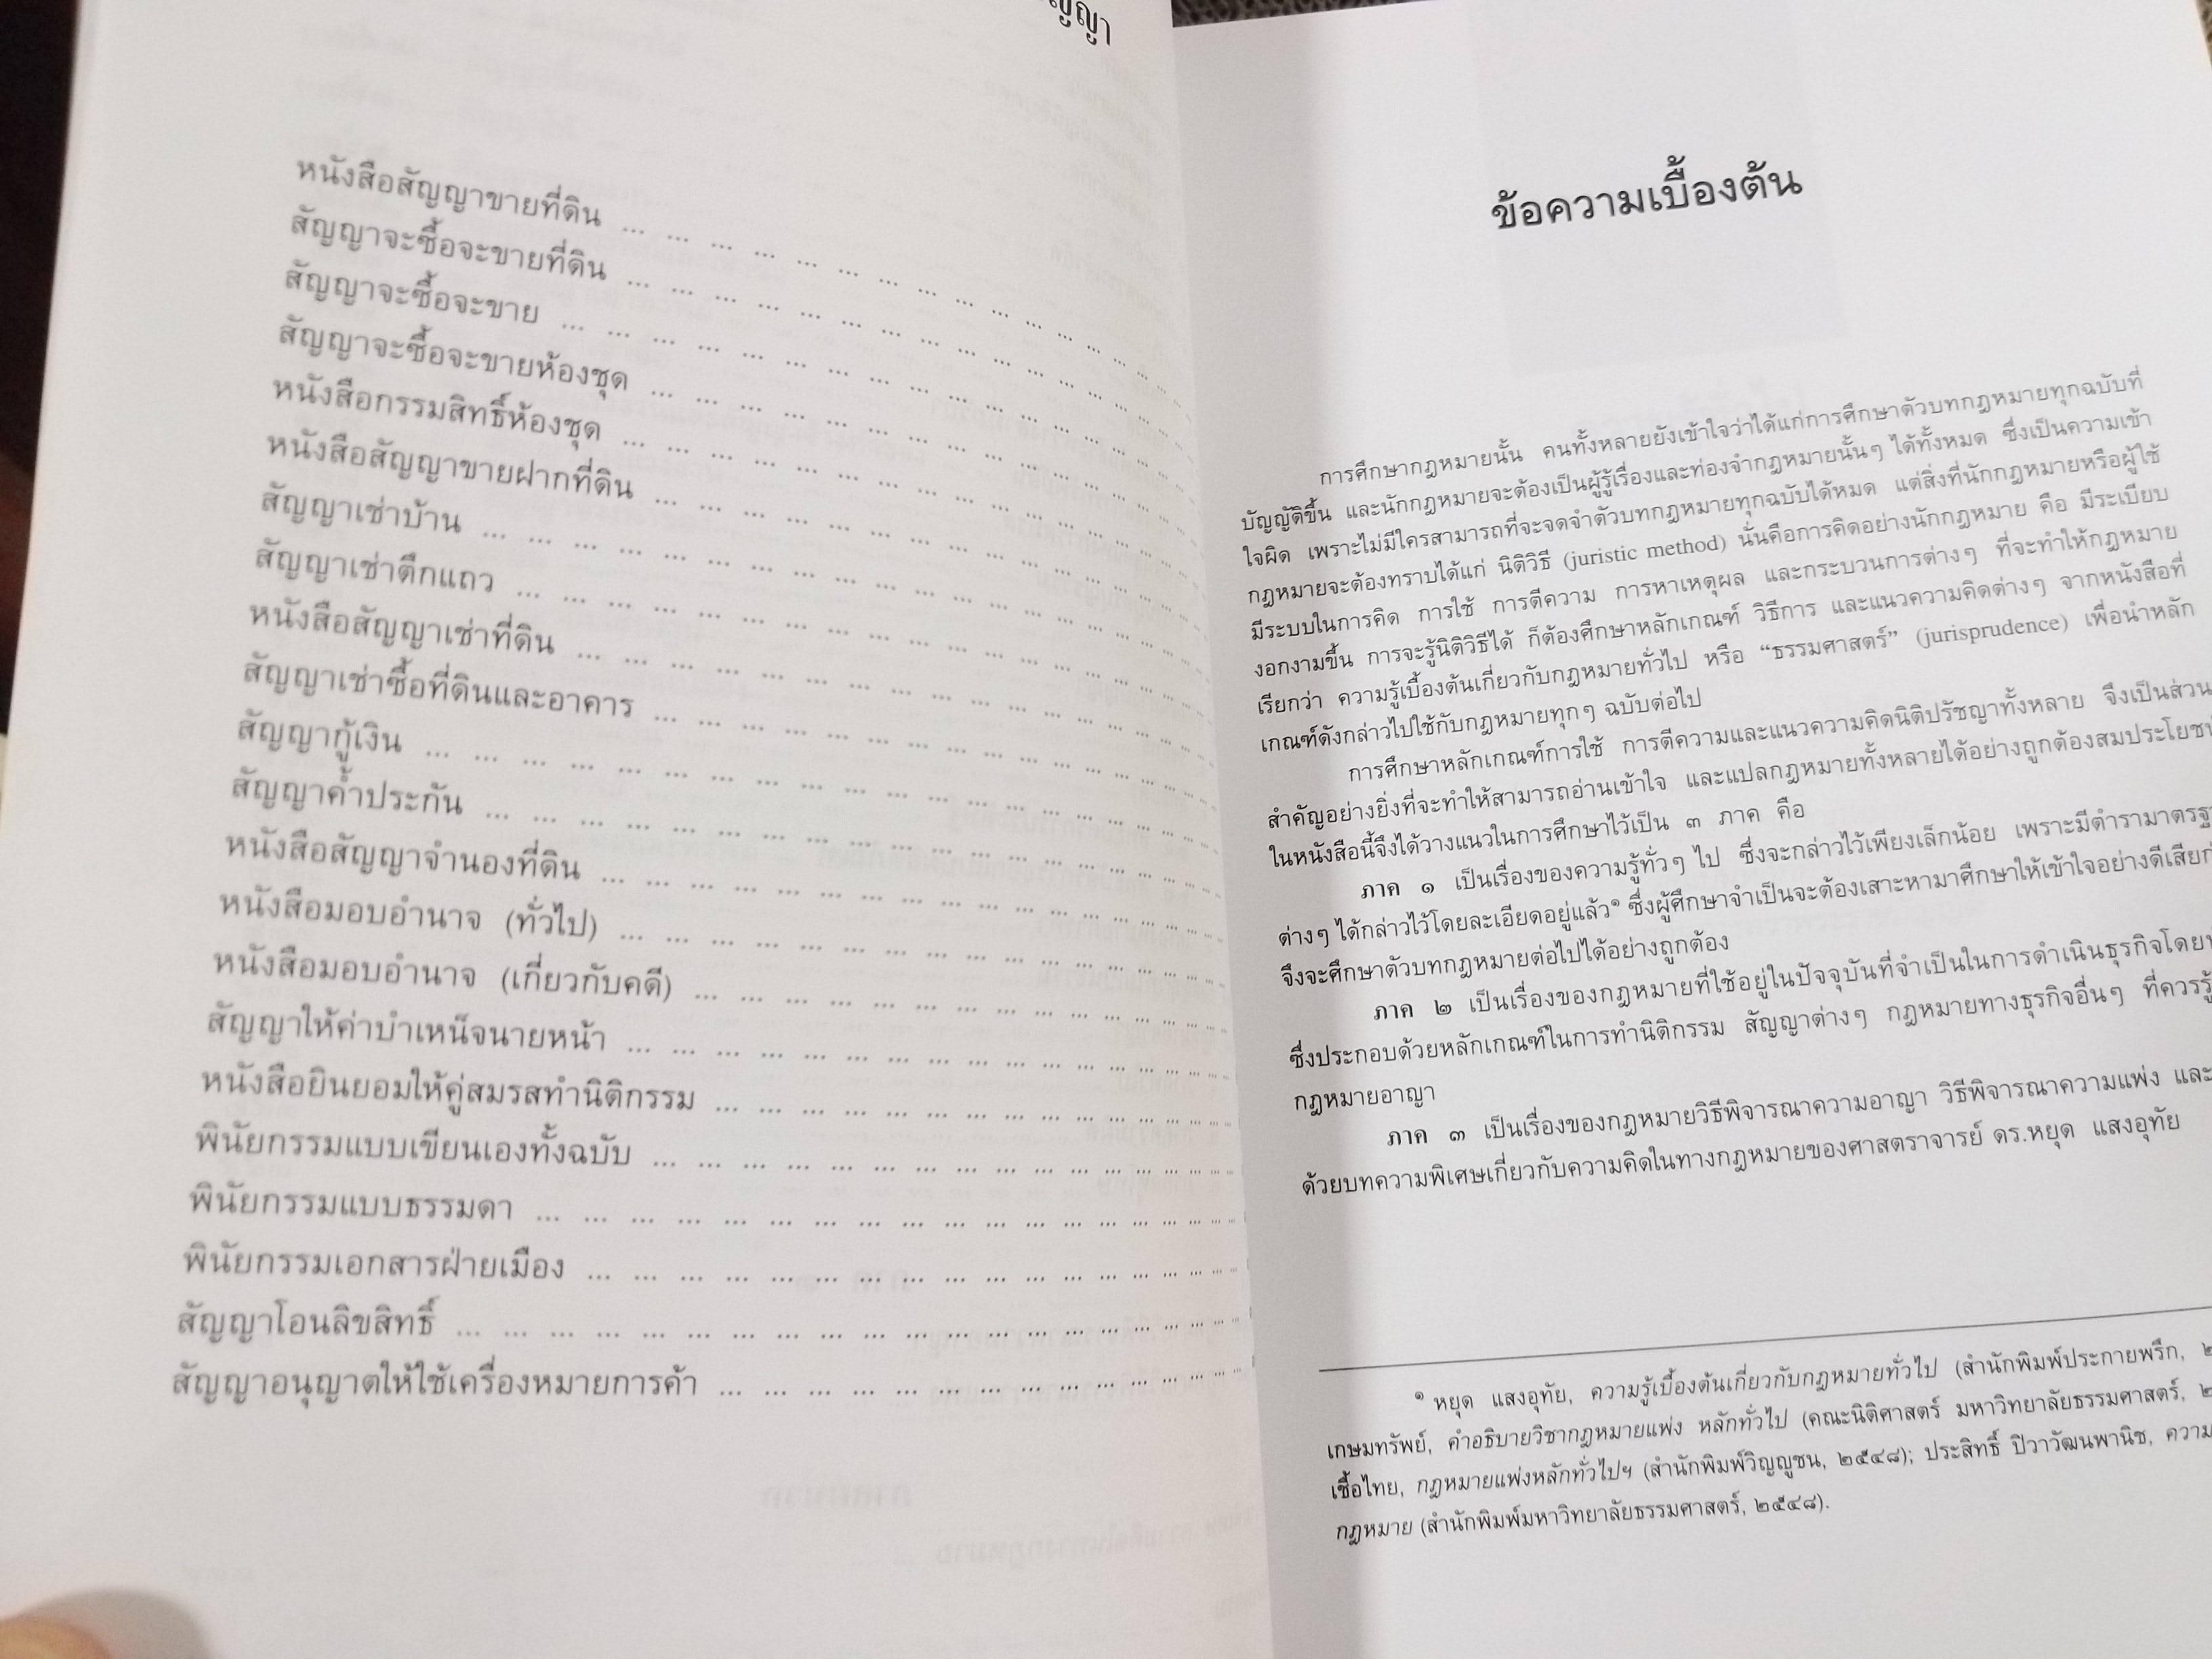 หนังสือสัญญาขายที่ดิน ... ... ... ... ... ... ... ... ... ... ... ... ...
สัญญาจะซื้อจะขายที่ดิน ... ... ... ... ... ... ... ... ... ... ... ... ...
สัญญาจะซื้อจะขาย ... ... ... ... ... ... ... ... ... ... ... ... ... ...
สัญญาจะซื้อจะขายห้องชุด ... ... ... ... ... ... ... ... ... ... ... ... ...
หนังสือกรรมสิทธิ์ห้องชุด ... ... ... ... ... ... ... ... ... ... ... ... ...
หนังสือสัญญาขายฝากที่ดิน ... ... ... ... ... ... ... ... ... ... ... ... ...
สัญญาเช่าบ้าน ... ... ... ... ... ... ... ... ... ... ... ... ... ... ...
สัญญาเช่าตึกแถว ... ... ... ... ... ... ... ... ... ... ... ... ... ... ...
หนังสือสัญญาเช่าที่ดิน ... ... ... ... ... ... ... ... ... ... ... ... ... ...
สัญญาเช่าซื้อที่ดินและอาคาร ... ... ... ... ... ... ... ... ... ... ... ... ...
สัญญากู้เงิน ... ... ... ... ... ... ... ... ... ... ... ... ... ... ... ...
สัญญาค้ำประกัน ... ... ... ... ... ... ... ... ... ... ... ... ... ... ...
หนังสือสัญญาจำนองที่ดิน ... ... ... ... ... ... ... ... ... ... ... ... ...
หนังสือมอบอำนาจ (ทั่วไป) ... ... ... ... ... ... ... ... ... ... ... ... ...
หนังสือมอบอำนาจ (เกี่ยวกับคดี) ... ... ... ... ... ... ... ... ... ... ... ...
สัญญาให้ค่าบำเหน็จนายหน้า ... ... ... ... ... ... ... ... ... ... ... ... ...
หนังสือยินยอมให้คู่สมรสทำนิติกรรม ... ... ... ... ... ... ... ... ... ... ... ...
พินัยกรรมแบบเขียนเองทั้งฉบับ ... ... ... ... ... ... ... ... ... ... ... ... ...
พินัยกรรมแบบธรรมดา ... ... ... ... ... ... ... ... ... ... ... ... ... ... ...
พินัยกรรมเอกสารฝ่ายเมือง ... ... ... ... ... ... ... ... ... ... ... ... ... ...
สัญญาโอนลิขสิทธิ์ ... ... ... ... ... ... ... ... ... ... ... ... ... ... ... ...
สัญญาอนุญาตให้ใช้เครื่องหมายการค้า ... ... ... ... ... ... ... ... ... ... ... ...
ข้อความเบื้องต้น
การศึกษากฎหมายนั้น คนทั้งหลายยังเข้าใจว่าได้แก่การศึกษาตัวบทกฎหมายทุกฉบับที่
บัญญัติขึ้น และนักกฎหมายจะต้องเป็นผู้รู้เรื่องและท่องจำกฎหมายนั้นๆ ได้ทั้งหมด ซึ่งเป็นความเข้า
ใจผิด เพราะไม่มีใครสามารถที่จะจดจำตัวบทกฎหมายทุกฉบับได้หมด แต่สิ่งที่นักกฎหมายหรือผู้ใช้
กฎหมายจะต้องทราบได้แก่ นิติวิธี (juristic method) นั่นคือการคิดอย่างนักกฎหมาย คือ มีระเบียบ
มีระบบในการคิด การใช้ การตีความ การหาเหตุผล และกระบวนการต่างๆ ที่จะทำให้กฎหมาย
งอกงามขึ้น การจะรู้นิติวิธีได้ ก็ต้องศึกษาหลักเกณฑ์ วิธีการ และแนวความคิดต่างๆ จากหนังสือที่
เรียกว่า ความรู้เบื้องต้นเกี่ยวกับกฎหมายทั่วไป หรือ “ธรรมศาสตร์” (jurisprudence) เพื่อนำหลัก
เกณฑ์ดังกล่าวไปใช้กับกฎหมายทุกๆ ฉบับต่อไป
การศึกษาหลักเกณฑ์การใช้ การตีความและแนวความคิดนิติปรัชญาทั้งหลาย จึงเป็นส่วน
สำคัญอย่างยิ่งที่จะทำให้สามารถอ่านเข้าใจ และแปลกฎหมายทั้งหลายได้อย่างถูกต้องสมประโยชน์
ในหนังสือนี้จึงได้วางแนวในการศึกษาไว้เป็น ๓ ภาค คือ
ภาค ๑ เป็นเรื่องของความรู้ทั่วๆ ไป ซึ่งจะกล่าวไว้เพียงเล็กน้อย เพราะมีตำรามาตรฐ
ต่างๆ ได้กล่าวไว้โดยละเอียดอยู่แล้ว๑ ซึ่งผู้ศึกษาจำเป็นจะต้องเสาะหามาศึกษาให้เข้าใจอย่างดีเสีย
จึงจะศึกษาตัวบทกฎหมายต่อไปได้อย่างถูกต้อง
ภาค ๒ เป็นเรื่องของกฎหมายที่ใช้อยู่ในปัจจุบันที่จำเป็นในการดำเนินธุรกิจโดย
ซึ่งประกอบด้วยหลักเกณฑ์ในการทำนิติกรรม สัญญาต่างๆ กฎหมายทางธุรกิจอื่นๆ ที่ควรรู้
กฎหมายอาญา
ภาค ๓ เป็นเรื่องของกฎหมายวิธีพิจารณาความอาญา วิธีพิจารณาความแพ่ง และ
ด้วยบทความพิเศษเกี่ยวกับความคิดในทางกฎหมายของศาสตราจารย์ ดร.หยุด แสงอุทัย
๑ หยุด แสงอุทัย, ความรู้เบื้องต้นเกี่ยวกับกฎหมายทั่วไป (สำนักพิมพ์ประกายพรึก, ๒
เกษมทรัพย์, คำอธิบายวิชากฎหมายแพ่ง หลักทั่วไป (คณะนิติศาสตร์ มหาวิทยาลัยธรรมศาสตร์, ๒
เชื้อไทย, กฎหมายแพ่งหลักทั่วไปฯ (สำนักพิมพ์วิญญูชน, ๒๕๔๘); ประสิทธิ์ ปิวาวัฒนพานิช, ความ
กฎหมาย (สำนักพิมพ์มหาวิทยาลัยธรรมศาสตร์, ๒๕๔๘).